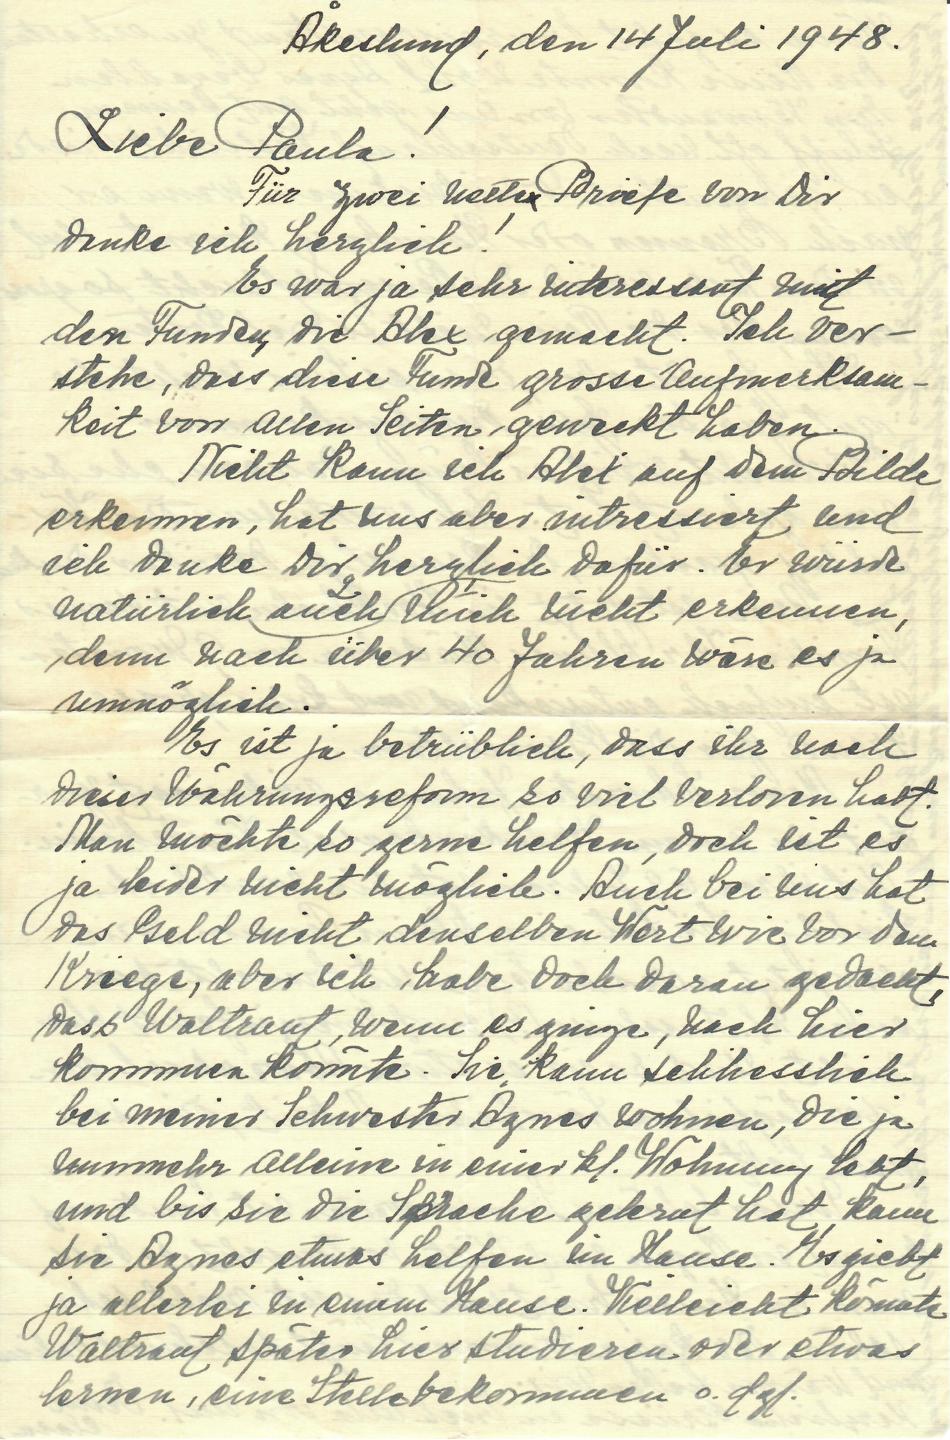 Åkeslund, den 14 Juli 1948.
Liebe Paula!
Für zwei nette Briefe von Dir
danke ich herzlich!
Es war ja sehr interessant mit
den Funden, die Alex gemacht. Ich ver-
stehe, dass diese Funde grosse Aufmerksam-
keit von allen Seiten geweckt haben.
Nicht kann ich Alex auf dem Bilde
erkennen, hat uns aber intressiert, und
ich danke Dir herzlich dafür. Er würde
natürlich auch mich nicht erkennen,
denn nach über 40 Jahren wäre es ja
unmöglich.
Es ist ja betrüblich, dass ihr nach
dieser Währungsreform so viel verloren habt.
Man möchte so gerne helfen, doch ist es
ja leider nicht möglich. Auch bei uns hat
das Geld nicht denselben Wert wie vor dem
Kriege, aber ich habe doch daran gedacht,
dass Waltraut, wenn es ginge, nach hier
kommen könnte. Sie kann schliesslich
bei meiner Schwester Agnes wohnen, die ja
nunmehr alleine in einer kl. Wohnung lebt,
und bis sie die Sprache gelernt hat, kann
sie Agnes etwas helfen im Hause. Es giebt
ja allerlei in einem Hause. Vielleicht könnte
Waltraut später hier studieren oder etwas
lernen, eine Stelle bekommen o. dgl.